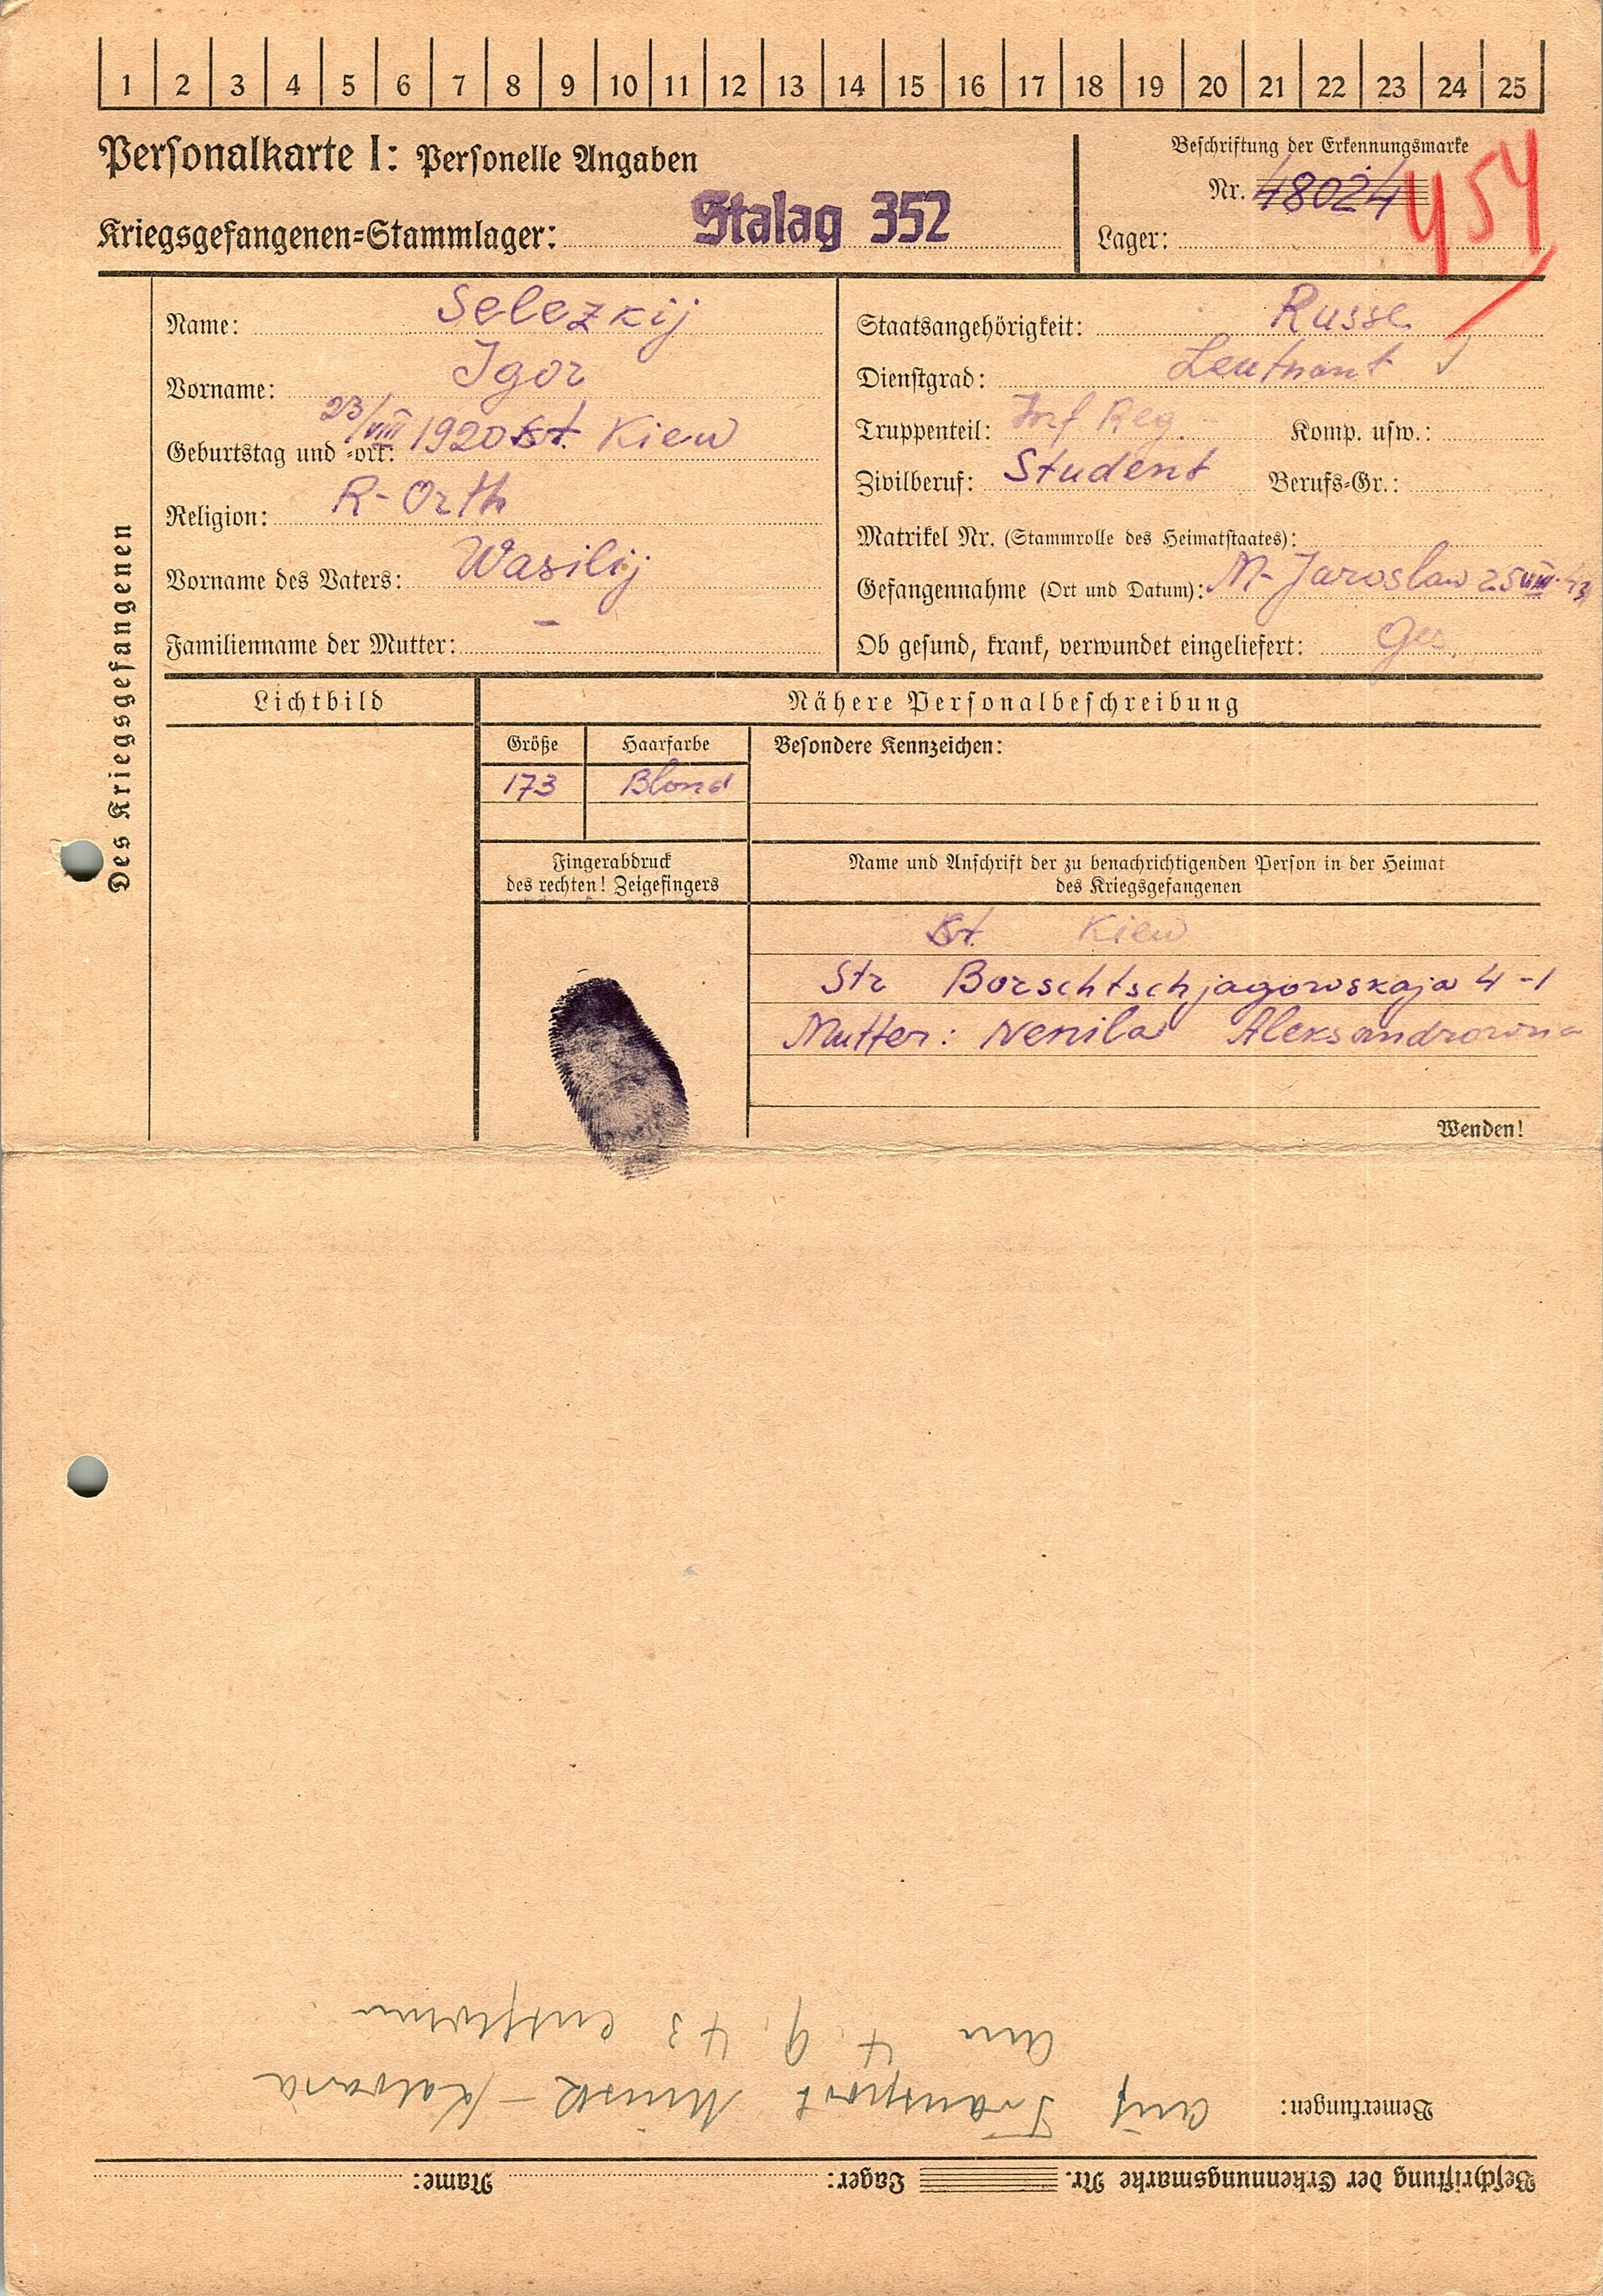 1 2 3 4 5 6 7 8 9 10 11 12 13 14 15 16 17 18 19 20 21 22 23 24 25
Personalkarte I: Personelle Angaben
Beschriftung der Erkennungsmarke
Nr. 48024
Kriegsgefangenen-Stammlager: Stalag 352
Lager:
Des Kriegsgefangenen
Name: Selezkij
Vorname: Igor
Geburtstag und -ort: 23/VIII 1920 St. Kiew
Religion: R-Orth
Vorname des Vaters: Wasilij
Familienname der Mutter: –
Staatsangehörigkeit: Russe
Dienstgrad: Leutnant
Truppenteil: Inf Reg. Komp. usw.:
Zivilberuf: Student Berufs-Gr.:
Matrikel Nr. (Stammrolle des Heimatstaates):
Gefangennahme (Ort und Datum): M-Jaroslaw 25 VIII. 43
Ob gesund, krank, verwundet eingeliefert: Ges.
Lichtbild
Nähere Personalbeschreibung
Größe Haarfarbe Besondere Kennzeichen:
173 Blond
Fingerabdruck
des rechten! Zeigefingers
Name und Anschrift der zu benachrichtigenden Person in der Heimat
des Kriegsgefangenen
St. Kiew
Str Borschtschjagowskaja 4-1
Mutter: Nenila Aleksandrowna
Wenden!
Beschriftung der Erkennungsmarke Nr. Lager: Name:
Bemerkungen: auf Transport Minsk – Kalvaria
am 4. 9. 43 entflohen